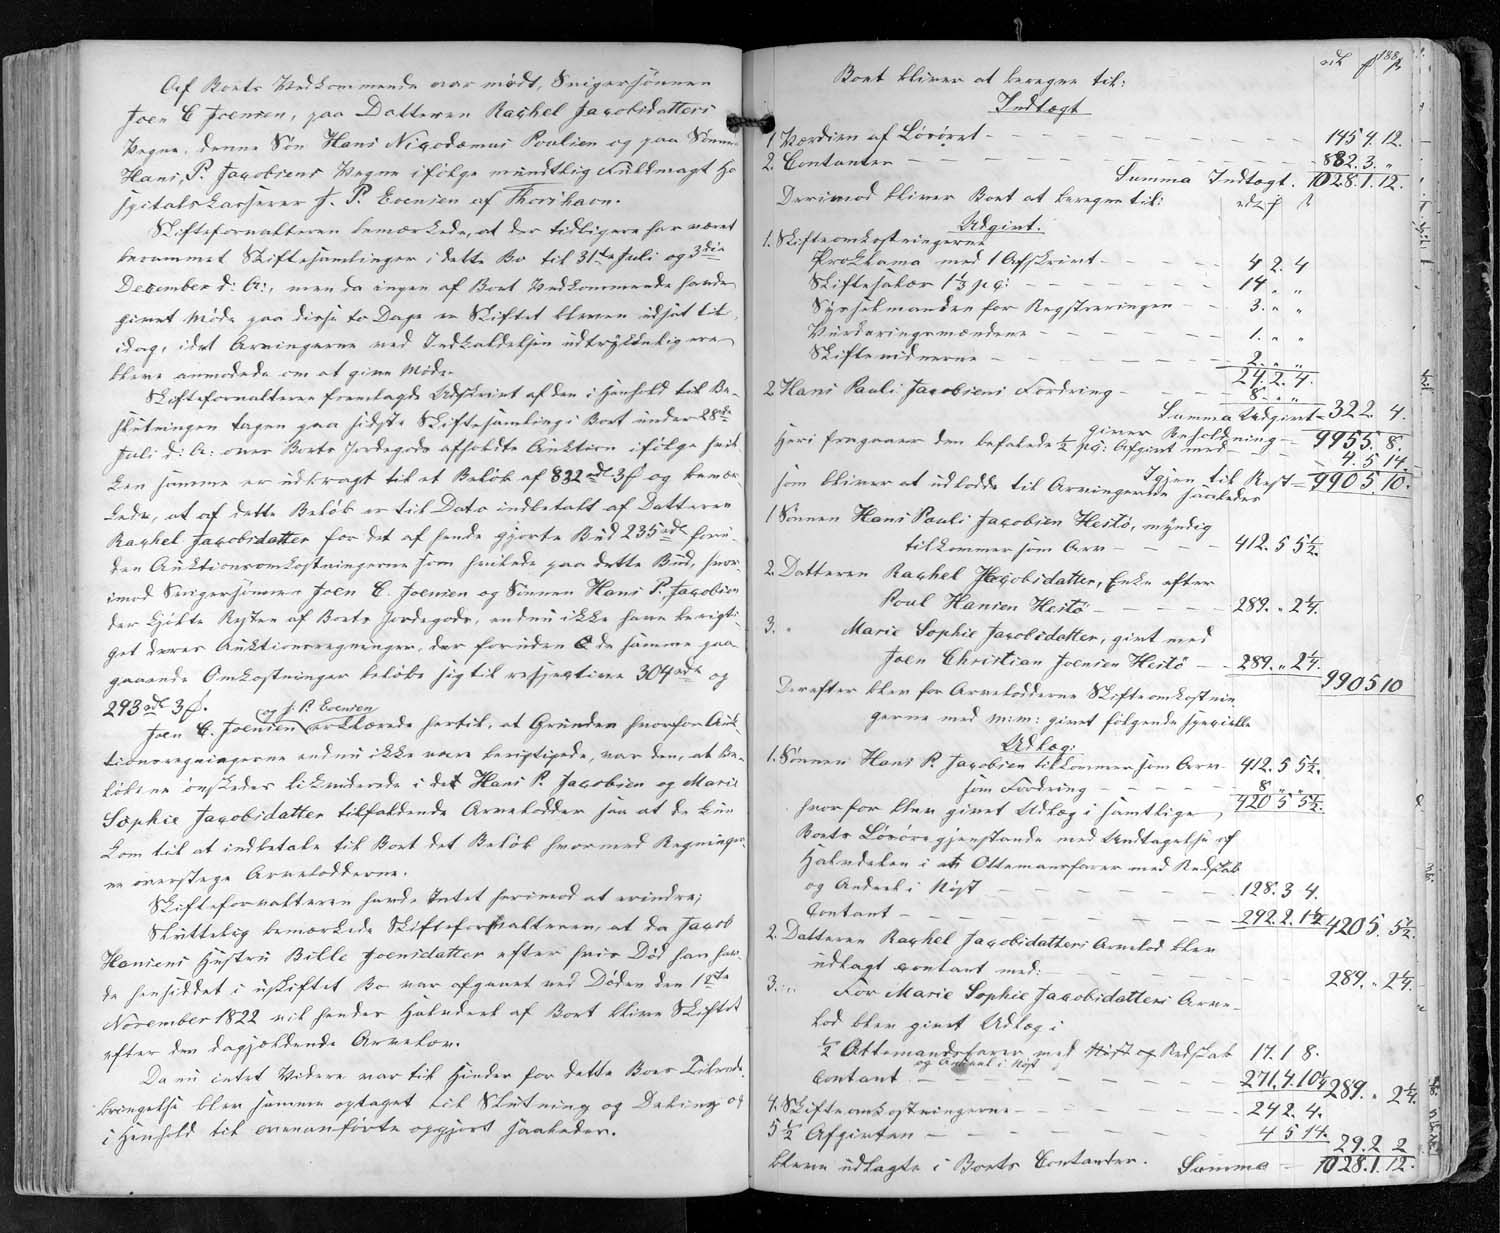 Af Boets Vedkommende var mødt, Svigersønnen
Joen C Joensen, paa Datteren Rachel Jacobsdatters
Vegne, denne Søn Hans Nicodæmus Poulsen og paa Sønnen
Hans P. Jacobsens Vegne ifølge mundtlig Fuldmagt Ho-
spitalskasserer J. P. Evensen af Thorshavn.
Skifteforvalteren bemærkede, at der tidligere har været
berammet Skiftesamlinger i dette Bo til 31te Juli og 3die
December d: A:, men da ingen af Boet Vedkommende havde
givet Møde paa disse to Dage er Skiftet bleven udsat til
idag, idet Arvingerne ved Indkaldelsen udtrykkelig ere
blevne anmodede om at give Møde.
Skifteforvalteren fremlagde Udskrivt af den i Henhold til Be-
slutningen tagen paa sidste Skiftesamling i Boet under 28de
Juli d: A: over Boets Jordegods afholdte Auktion ifølge hvil-
ken samme er udbragt til et Beløb af 832 rdl 3 ß og bemær-
kede, at af dette Beløb er til Dato indbetalt af Datteren
Rachel Jacobsdatter for det af hende gjorte Bud 235 rdl foru-
den Auktionsomkostningerne som hvilede paa dette Bud, hvor-
imod Svigersønnen Joen C. Joensen og Sønnen Hans P. Jacobsen
der kjøbte Resten af Boets Jordegods, endnu ikke have berigti-
get deres Auktionsregninger, der foruden de samme paa-
gaaende Omkostninger beløbe sig til respective 304 rdl og
293 rdl 3 ß.
og J. P. Evensen
Joen C. Joensen erklærede hertil, at Grunden hvorfor Auk-
tionsregningerne endnu ikke vare berigtigede, var den, at Be-
løbene ønskedes likviderede i det Hans P. Jacobsen og Marie
Sophie Jacobsdatter tilfaldende Arvelodder saa at de kun
kom til at indbetale til Boet det Beløb hvormed Regninger-
ne overstege Arvelodderne.
Skifteforvalteren havde Intet herimod at erindre;
Sluttelig bemærkede Skifteforvalteren, at da Jacob
Hansens Hustru Bille Joensdatter efter hvis Død han hav-
de hensiddet i uskiftet Bo var afgaaet ved Døden den 12te
November 1822 vil hendes Halvdeel af Boet blive Skiftet
efter den dagjældende Arvelov.
Da nu intet Videre var til Hinder for dette Boes Tilende-
bringelse blev samme optaget til Slutning og Deling og
i Henhold til ovenanførte opgjort saaledes.
188
Boet bliver at beregne til: rdl ß
Indtægt
1 Værdien af Løsøret 145 4. 12.
2. Contanter 882. 3. "
Summa Indtægt. 1028. 1. 12.
Derimod bliver Boet at beregne til:
Udgivt:
1. Skifteomkostningerne
Proklama med 1 Afskrivt 4 2. 4
Skiftesalær 1⅓ pC: 14 " "
Sysselmanden for Registreringen 3. " "
Vurderingsmændene 1. " "
Skiftevidnerne 2. " "
24. 2. 4.
2 Hans Pauli Jacobsens Fordring 8. " "
Summa Udgivt 32 2. 4.
giver Beholdning 995 5. 8.
Heri fragaaer den befalede ½ pC: Afgivt med 4. 5 14.
Igjen til Rest 990 5. 10.
som bliver at udlodde til Arvingerne saaledes
1 Sønnen Hans Pauli Jacobsen Hestø, myndig
tilkommer som Arv 412. 5 5½.
2. Datteren Rachel Jacobsdatter, Enke efter
Poul Hansen Hestø 289. " 2¼.
3. " Marie Sophie Jacobsdatter, givt med
Joen Christian Joensen Hestø 289. " 2¼.
990 5 10
Derefter blev for Arvelodderne Skifteomkostnin-
gerne med m: m: givet følgende specielle
Udlæg:
1. Sønnen Hans P. Jacobsen tilkommer som Arv 412. 5 5½.
som Fordring 8 " "
420 5 5½.
hvorfor blev givet Udlæg i samtlige
Boets Løsøre gjenstande med Undtagelse af
Halvdelen i et Ottemansfarer med Redskab
og Andeel i Nøst 128. 3 4.
Contant 292. 2. 1½ 420 5. 5½.
2. Datteren Rachel Jacobsdatters Arvelod blev
udlagt contant med: 289. " 2¼.
3. " For Marie Sophie Jacobsdatters Arve-
lod blev givet Udlæg i
½ Ottemandsfarer med Nøst og Redskab 17. 1 8.
og Andeel i Nøst
Contant 271. 4. 10¼ 289. " 2¼.
4. Skifteomkostningerne 24 2. 4.
5 ½ Afgivten 4 5 14. 29. 2 2
bleve udlagte i Boets Contanter. Summa 1028. 1. 12.